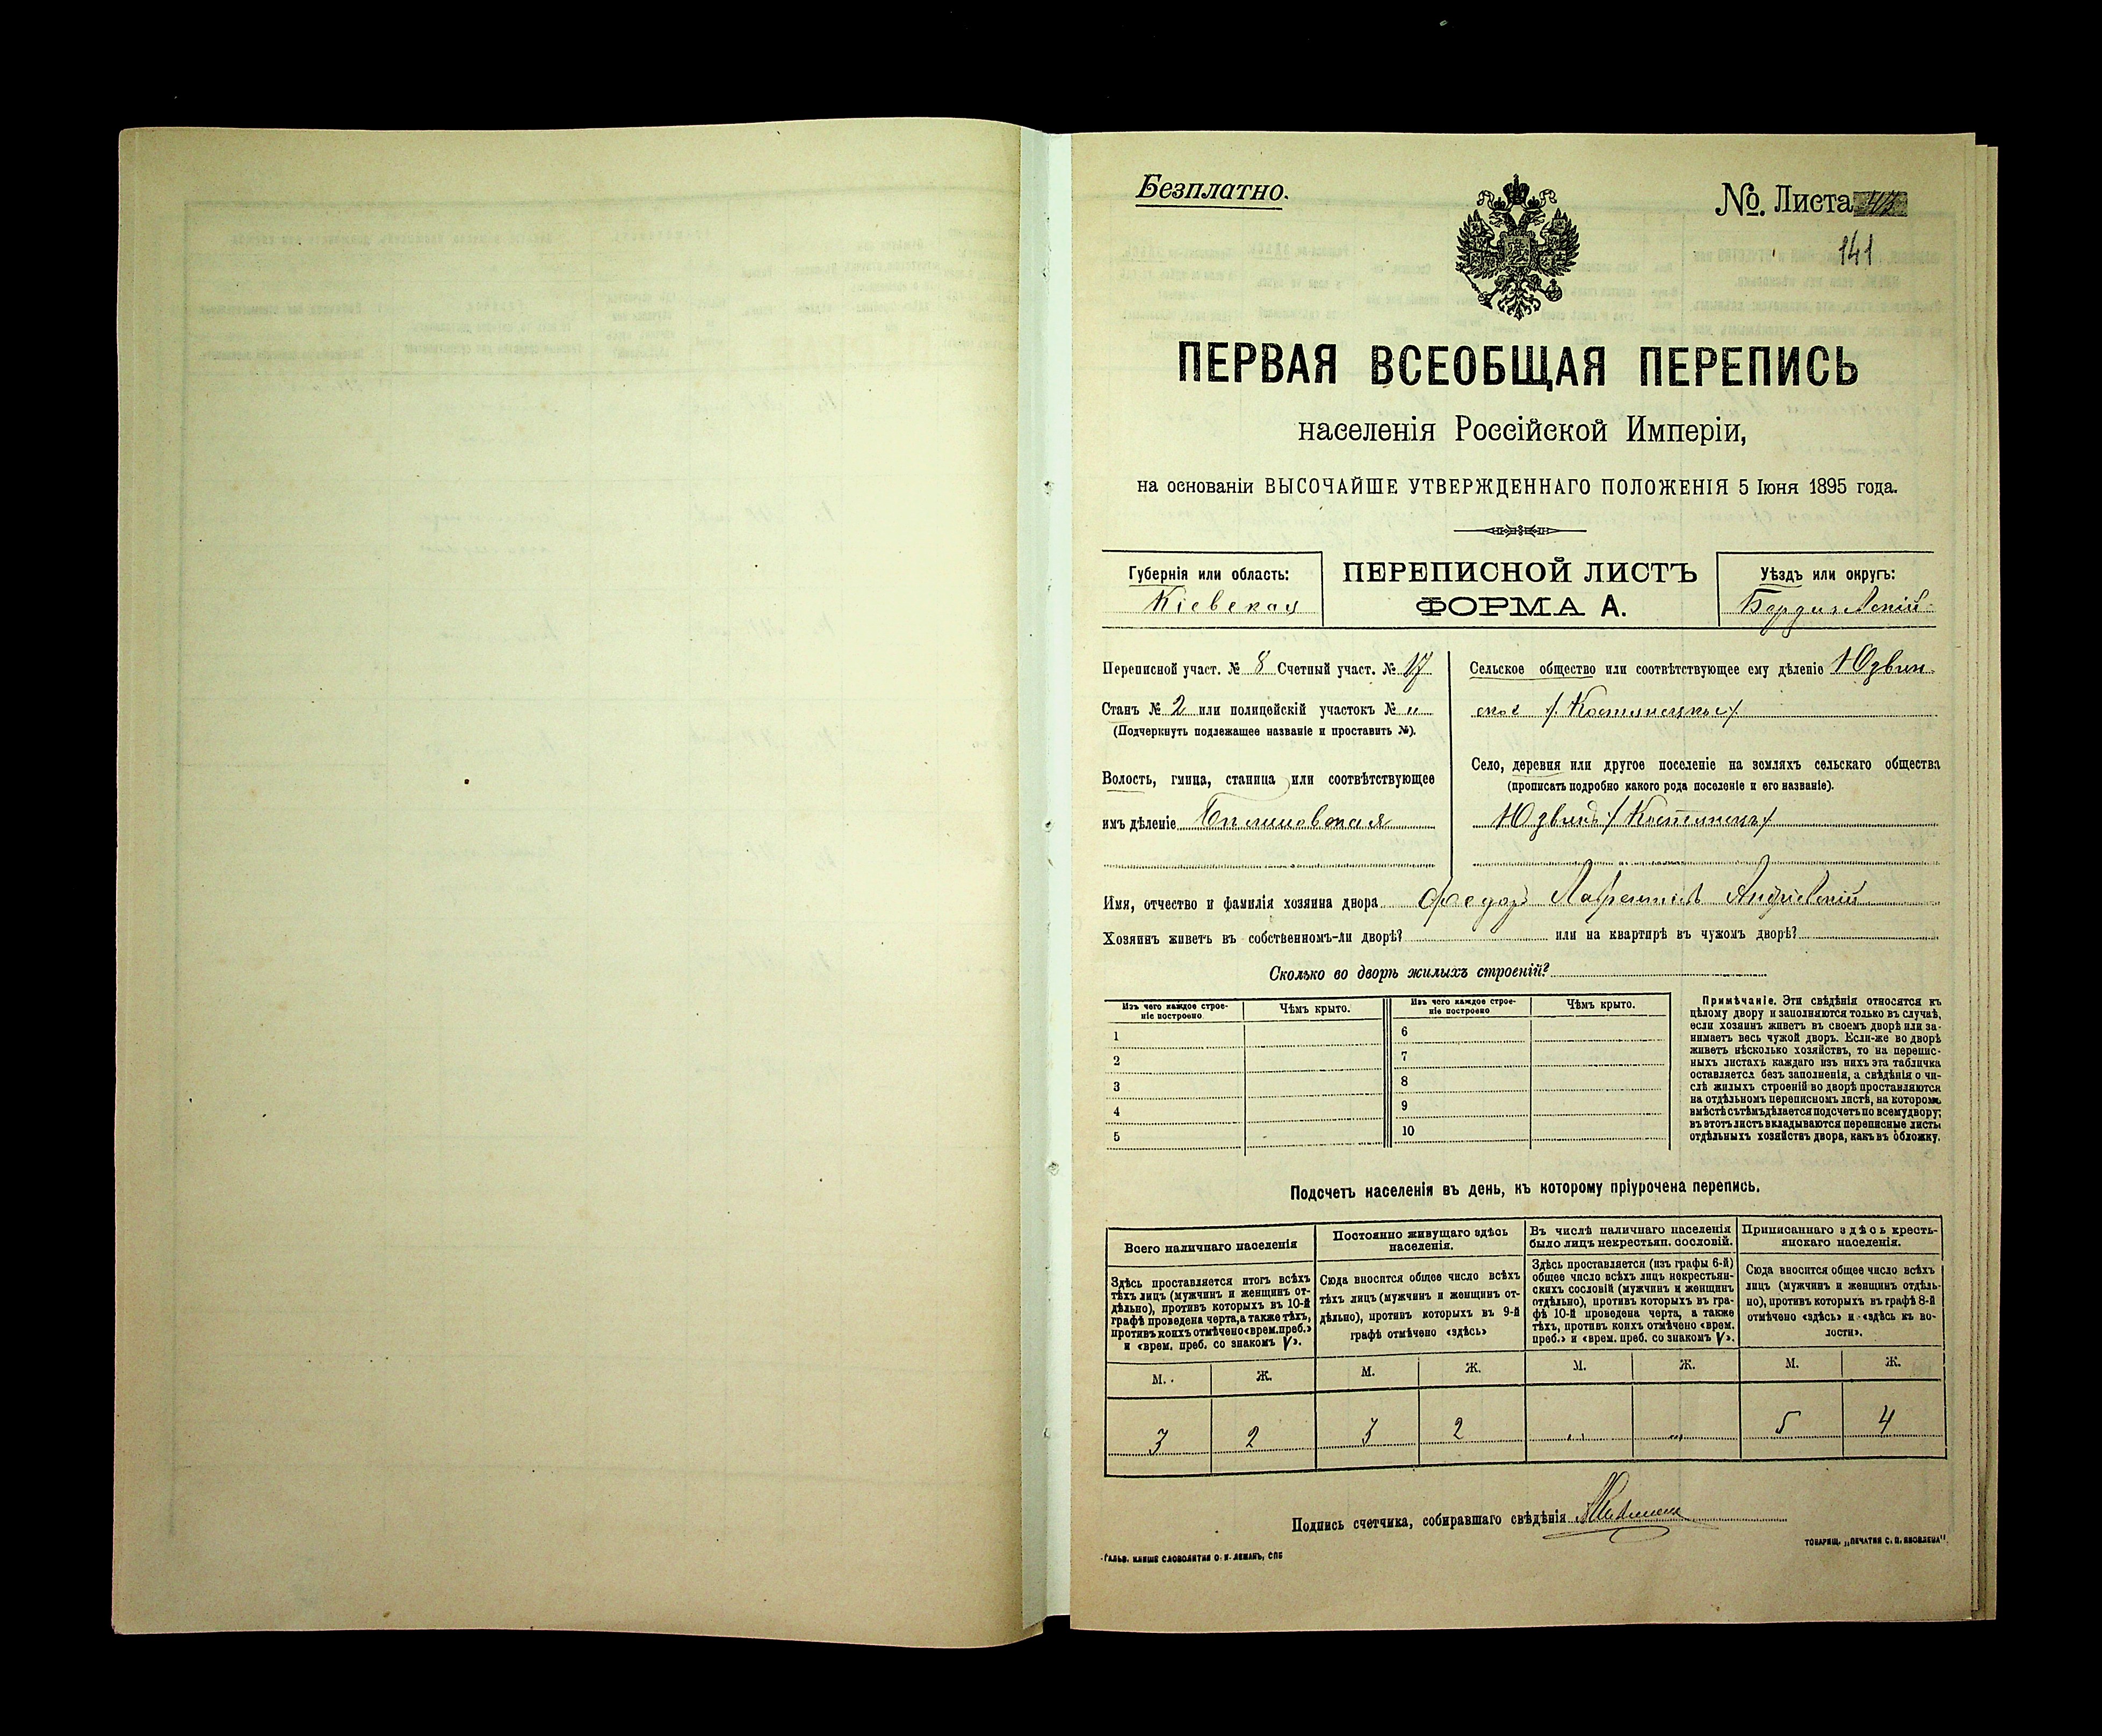 Безплатно.
№. Листа 43
141
ПЕРВАЯ ВСЕОБЩАЯ ПЕРЕПИСЬ
населенія Россійской Имперіи,
на основаніи ВЫСОЧАЙШЕ УТВЕРЖДЕННАГО ПОЛОЖЕНІЯ 5 Іюня 1895 года.
Губернія или область:
Кіевская
ПЕРЕПИСНОЙ ЛИСТЪ
ФОРМА А.
Уѣздъ или округъ:
Бердичевскій
Переписной участ. № 8 Счетный участ. № 17
Станъ № 2 или полицейскій участокъ № „
(Подчеркнуть подлежащее названіе и проставить №).
Волость, гмина, станица или соотвѣтствующее
имъ дѣленіе
Сельское общество или соотвѣтствующее ему дѣленіе Юзвин-
ское
Село, деревня или другое поселеніе на земляхъ сельскаго общества
(прописать подробно какого рода поселеніе и его названіе).
Юзвинъ
Имя, отчество и фамилія хозяина двора Федоръ Лаврентіевъ Андріевскій
Хозяинъ живетъ въ собственномъ-ли дворѣ? или на квартирѣ въ чужомъ дворѣ?
Сколько во дворѣ жилыхъ строеній?
Изъ чего каждое строе-
ніе построено
Чѣмъ крыто.
1
2
3
4
5
Изъ чего каждое строе-
ніе построено
Чѣмъ крыто.
6
7
8
9
10
Примѣчаніе. Эти свѣдѣнія относятся къ
цѣлому двору и заполняются только въ случаѣ,
если хозяинъ живетъ въ своемъ дворѣ или за-
нимаетъ весь чужой дворъ. Если-же во дворѣ
живетъ нѣсколько хозяйствъ, то на перепис-
ныхъ листахъ каждаго изъ нихъ эта табличка
оставляется безъ заполненія, а свѣдѣнія о чи-
слѣ жилыхъ строеній во дворѣ проставляются
на отдѣльномъ переписномъ листѣ, на которомъ
вмѣстѣ съ тѣмъ дѣлается подсчетъ по всему двору;
въ этотъ листъ вкладываются переписные листы
отдѣльныхъ хозяйствъ двора, какъ въ обложку.
Подсчетъ населенія въ день, къ которому пріурочена перепись.
Всего наличнаго населенія
Здѣсь проставляется итогъ всѣхъ
тѣхъ лицъ (мужчинъ и женщинъ от-
дѣльно), противъ которыхъ въ 10-й
графѣ проведена черта, а также тѣхъ,
противъ коихъ отмѣчено «врем. преб.»
и «врем. преб. со знакомъ V».
Постоянно живущаго здѣсь
населенія.
Сюда вносится общее число всѣхъ
тѣхъ лицъ (мужчинъ и женщинъ от-
дѣльно), противъ которыхъ въ 9-й
графѣ отмѣчено «здѣсь»
Въ числѣ наличнаго населенія
было лицъ некрестьян. сословій.
Здѣсь проставляется (изъ графы 6-й)
общее число всѣхъ лицъ некрестьян-
скихъ сословій (мужчинъ и женщинъ
отдѣльно), противъ которыхъ въ гра-
фѣ 10-й проведена черта, а также
тѣхъ, противъ коихъ отмѣчено «врем.
преб.» и «врем. преб. со знакомъ V».
Приписаннаго здѣсь кресть-
янскаго населенія.
Сюда вносится общее число всѣхъ
лицъ (мужчинъ и женщинъ отдѣль-
но), противъ которыхъ въ графѣ 8-й
отмѣчено «здѣсь» и «здѣсь къ во-
лости».
М. Ж. М. Ж. М. Ж. М. Ж.
3 2 3 2 „ „ 5 4
Подпись счетчика, собиравшаго свѣдѣнія
Гальв. клише словолитни О. И. Леманъ, СПБ
ТОВАРИЩ. „ПЕЧАТНЯ С. П. ЯКОВЛЕВА".